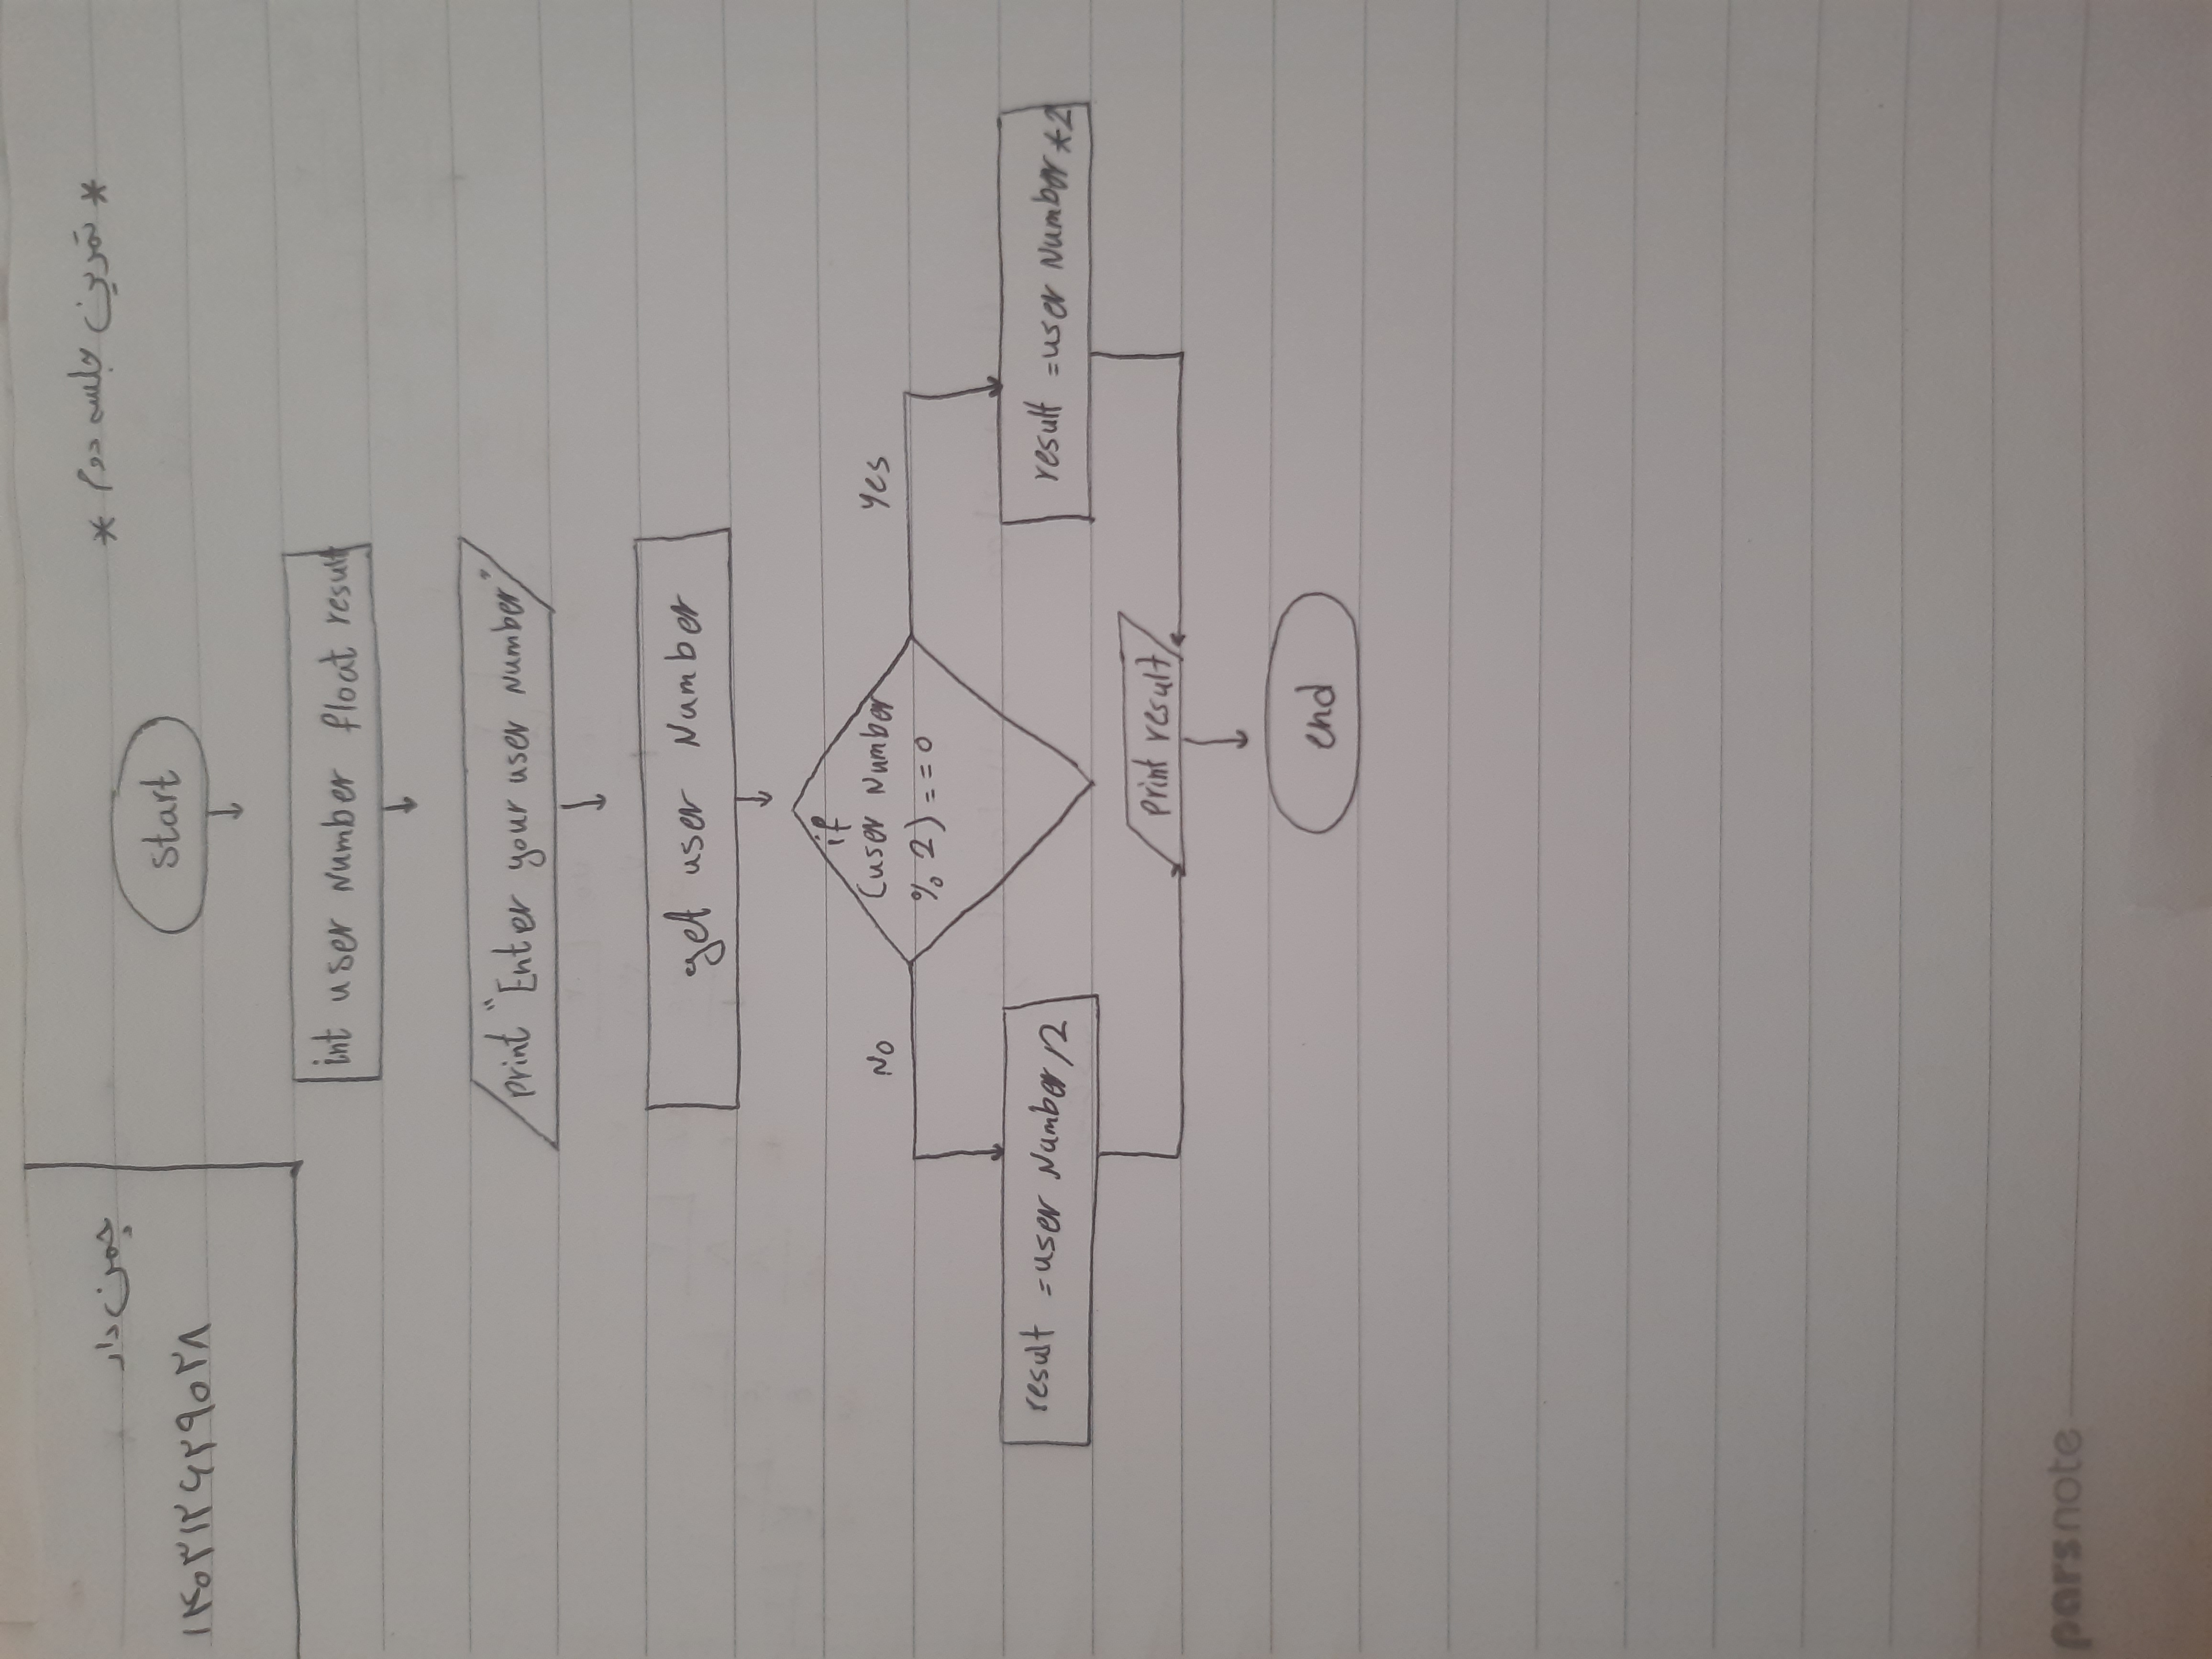 * تمرین جلسه دوم *
چمن دار
۱۴۰۳۱۲۶۲۹۰۲۸
start
int user Number float result
print "Enter your user Number"
get user Number
if
(user Number
% 2) = = 0
No
Yes
result = user Number / 2
result = user Number * 2
print result
end
parsnote